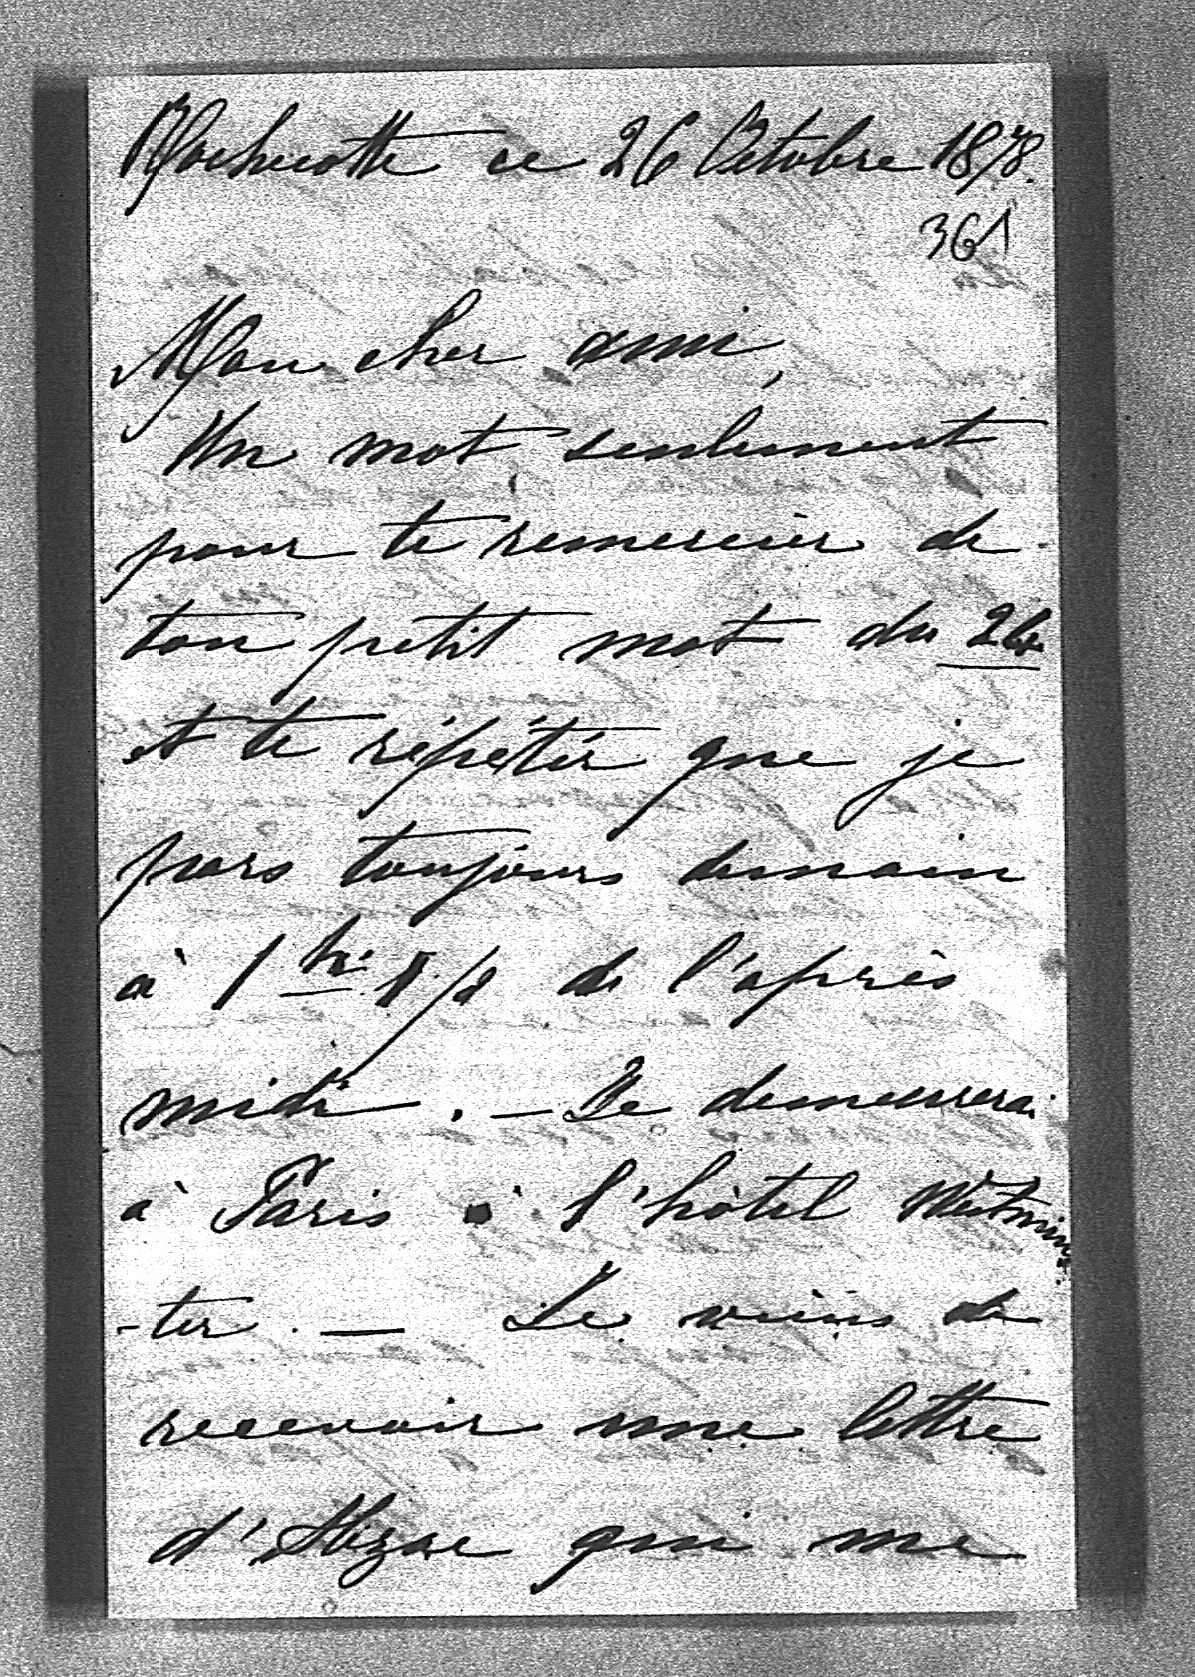 Rochecotte ce 26 Octobre 1878.
361
Mon cher ami,
Un mot seulement
pour te remercier de
ton petit mot du 24
et te répéter que je
pars toujours demain
à 1 h. 1/2 de l'après
midi. — Je demeurerai
à Paris à l'hôtel Westmins
-ter. — Je viens de
recevoir une lettre
d'Abzac qui me